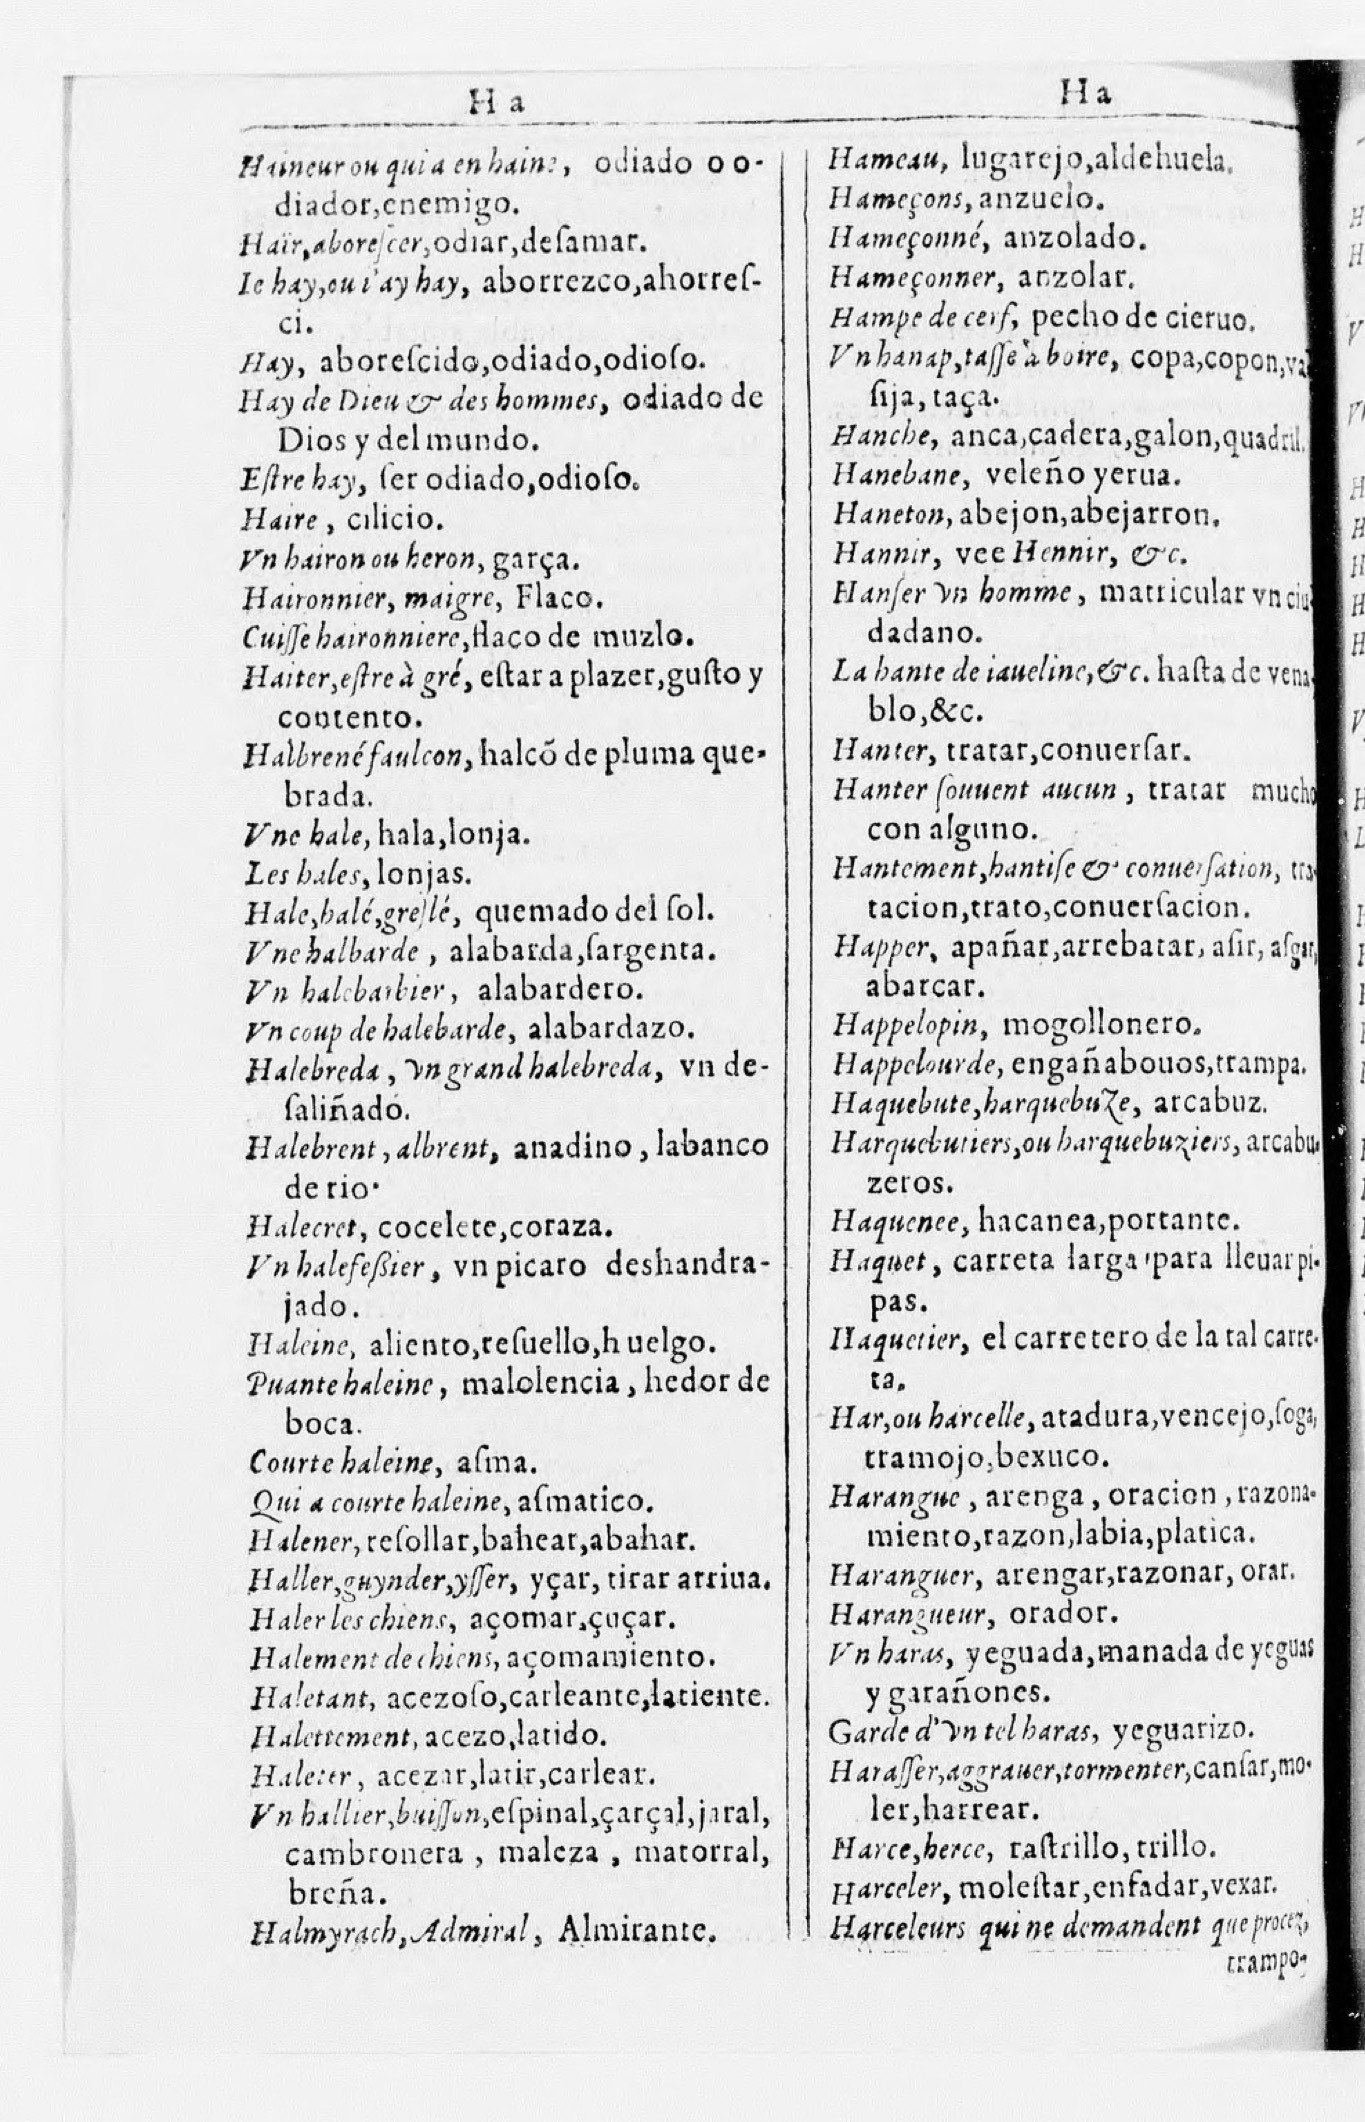 Ha
Haineur ou qui a en haine, odiado o o-
diador,enemigo.
Haïr,aboreſcer,odiar,deſamar.
Ie hay,ou i'ay hay, aborrezco,ahorreſ-
ci.
Hay, aboreſcido,odiado,odioſo.
Hay de Dieu & des hommes, odiado de
Dios y del mundo.
Eſtre hay, ſer odiado,odioſo.
Haire, cilicio.
Vn hairon ou heron, garça.
Haironnier, maigre, Flaco.
Cuiſſe haironniere,flaco de muzlo.
Haiter,eſtre à gré, eſtar a plazer,guſto y
contento.
Halbrené faulcon, halcõ de pluma que-
brada.
Vne hale, hala,lonja.
Les hales, lonjas.
Hale,halé,greſlé, quemado del ſol.
Vne halbarde, alabarda,ſargenta.
Vn halebarbier, alabardero.
Vn coup de halebarde, alabardazo.
Halebreda, vn grand halebreda, vn de-
ſaliñado.
Halebrent, albrent, anadino, labanco
de rio.
Halecret, cocelete,coraza.
Vn halefeßier, vn picaro deshandra-
jado.
Haleine, aliento,reſuello,huelgo.
Puante haleine, malolencia, hedor de
boca.
Courte haleine, aſma.
Qui a courte haleine, aſmatico.
Halener, reſollar,bahear,abahar.
Haller,guynder,yſſer, yçar, tirar arriua.
Haler les chiens, açomar,çuçar.
Halement de chiens, açomamiento.
Haletant, acezoſo,carleante,latiente.
Halettement, acezo,latido.
Haleter, acezar,latir,carlear.
Vn hallier,buiſſon,eſpinal,çarçal,jaral,
cambronera, maleza, matorral,
breña.
Halmyrach, Admiral, Almirante.
Ha
Hameau, lugarejo,aldehuela.
Hameçons, anzuelo.
Hameçonné, anzolado.
Hameçonner, anzolar.
Hampe de cerf, pecho de cieruo.
Vn hanap,taſſe à boire, copa,copon,va
ſija, taça.
Hanche, anca,cadera,galon,quadril.
Hanebane, veleño yerua.
Haneton, abejon,abejarron.
Hannir, vee Hennir, &c.
Hanſer vn homme, matricular vn ciu
dadano.
La hante de iaueline,&c. haſta de vena-
blo,&c.
Hanter, tratar,conuerſar.
Hanter ſouuent aucun, tratar mucho
con alguno.
Hantement,hantiſe & conuerſation, tra-
tacion,trato,conuerſacion.
Happer, apañar,arrebatar, aſir, aſgar,
abarcar.
Happelopin, mogollonero.
Happelourde, engañabouos,trampa.
Haquebute,harquebuze, arcabuz.
Harquebutiers,ou harquebuziers, arcabu-
zeros.
Haquenee, hacanea,portante.
Haquet, carreta larga para lleuar pi-
pas.
Haquetier, el carretero de la tal carre-
ta.
Har,ou harcelle, atadura,vencejo,ſoga,
tramojo,bexuco.
Harangue, arenga, oracion, razona-
miento,razon,labia,platica.
Haranguer, arengar,razonar, orar.
Harangueur, orador.
Vn haras, yeguada,manada de yeguas
y garañones.
Garde d'vn tel haras, yeguarizo.
Haraſſer,aggrauer,tormenter,canſar,mo-
ler,harrear.
Harce,herce, raſtrillo, trillo.
Harceler, moleſtar,enfadar,vexar.
Harceleurs qui ne demandent que procez,
trampo-